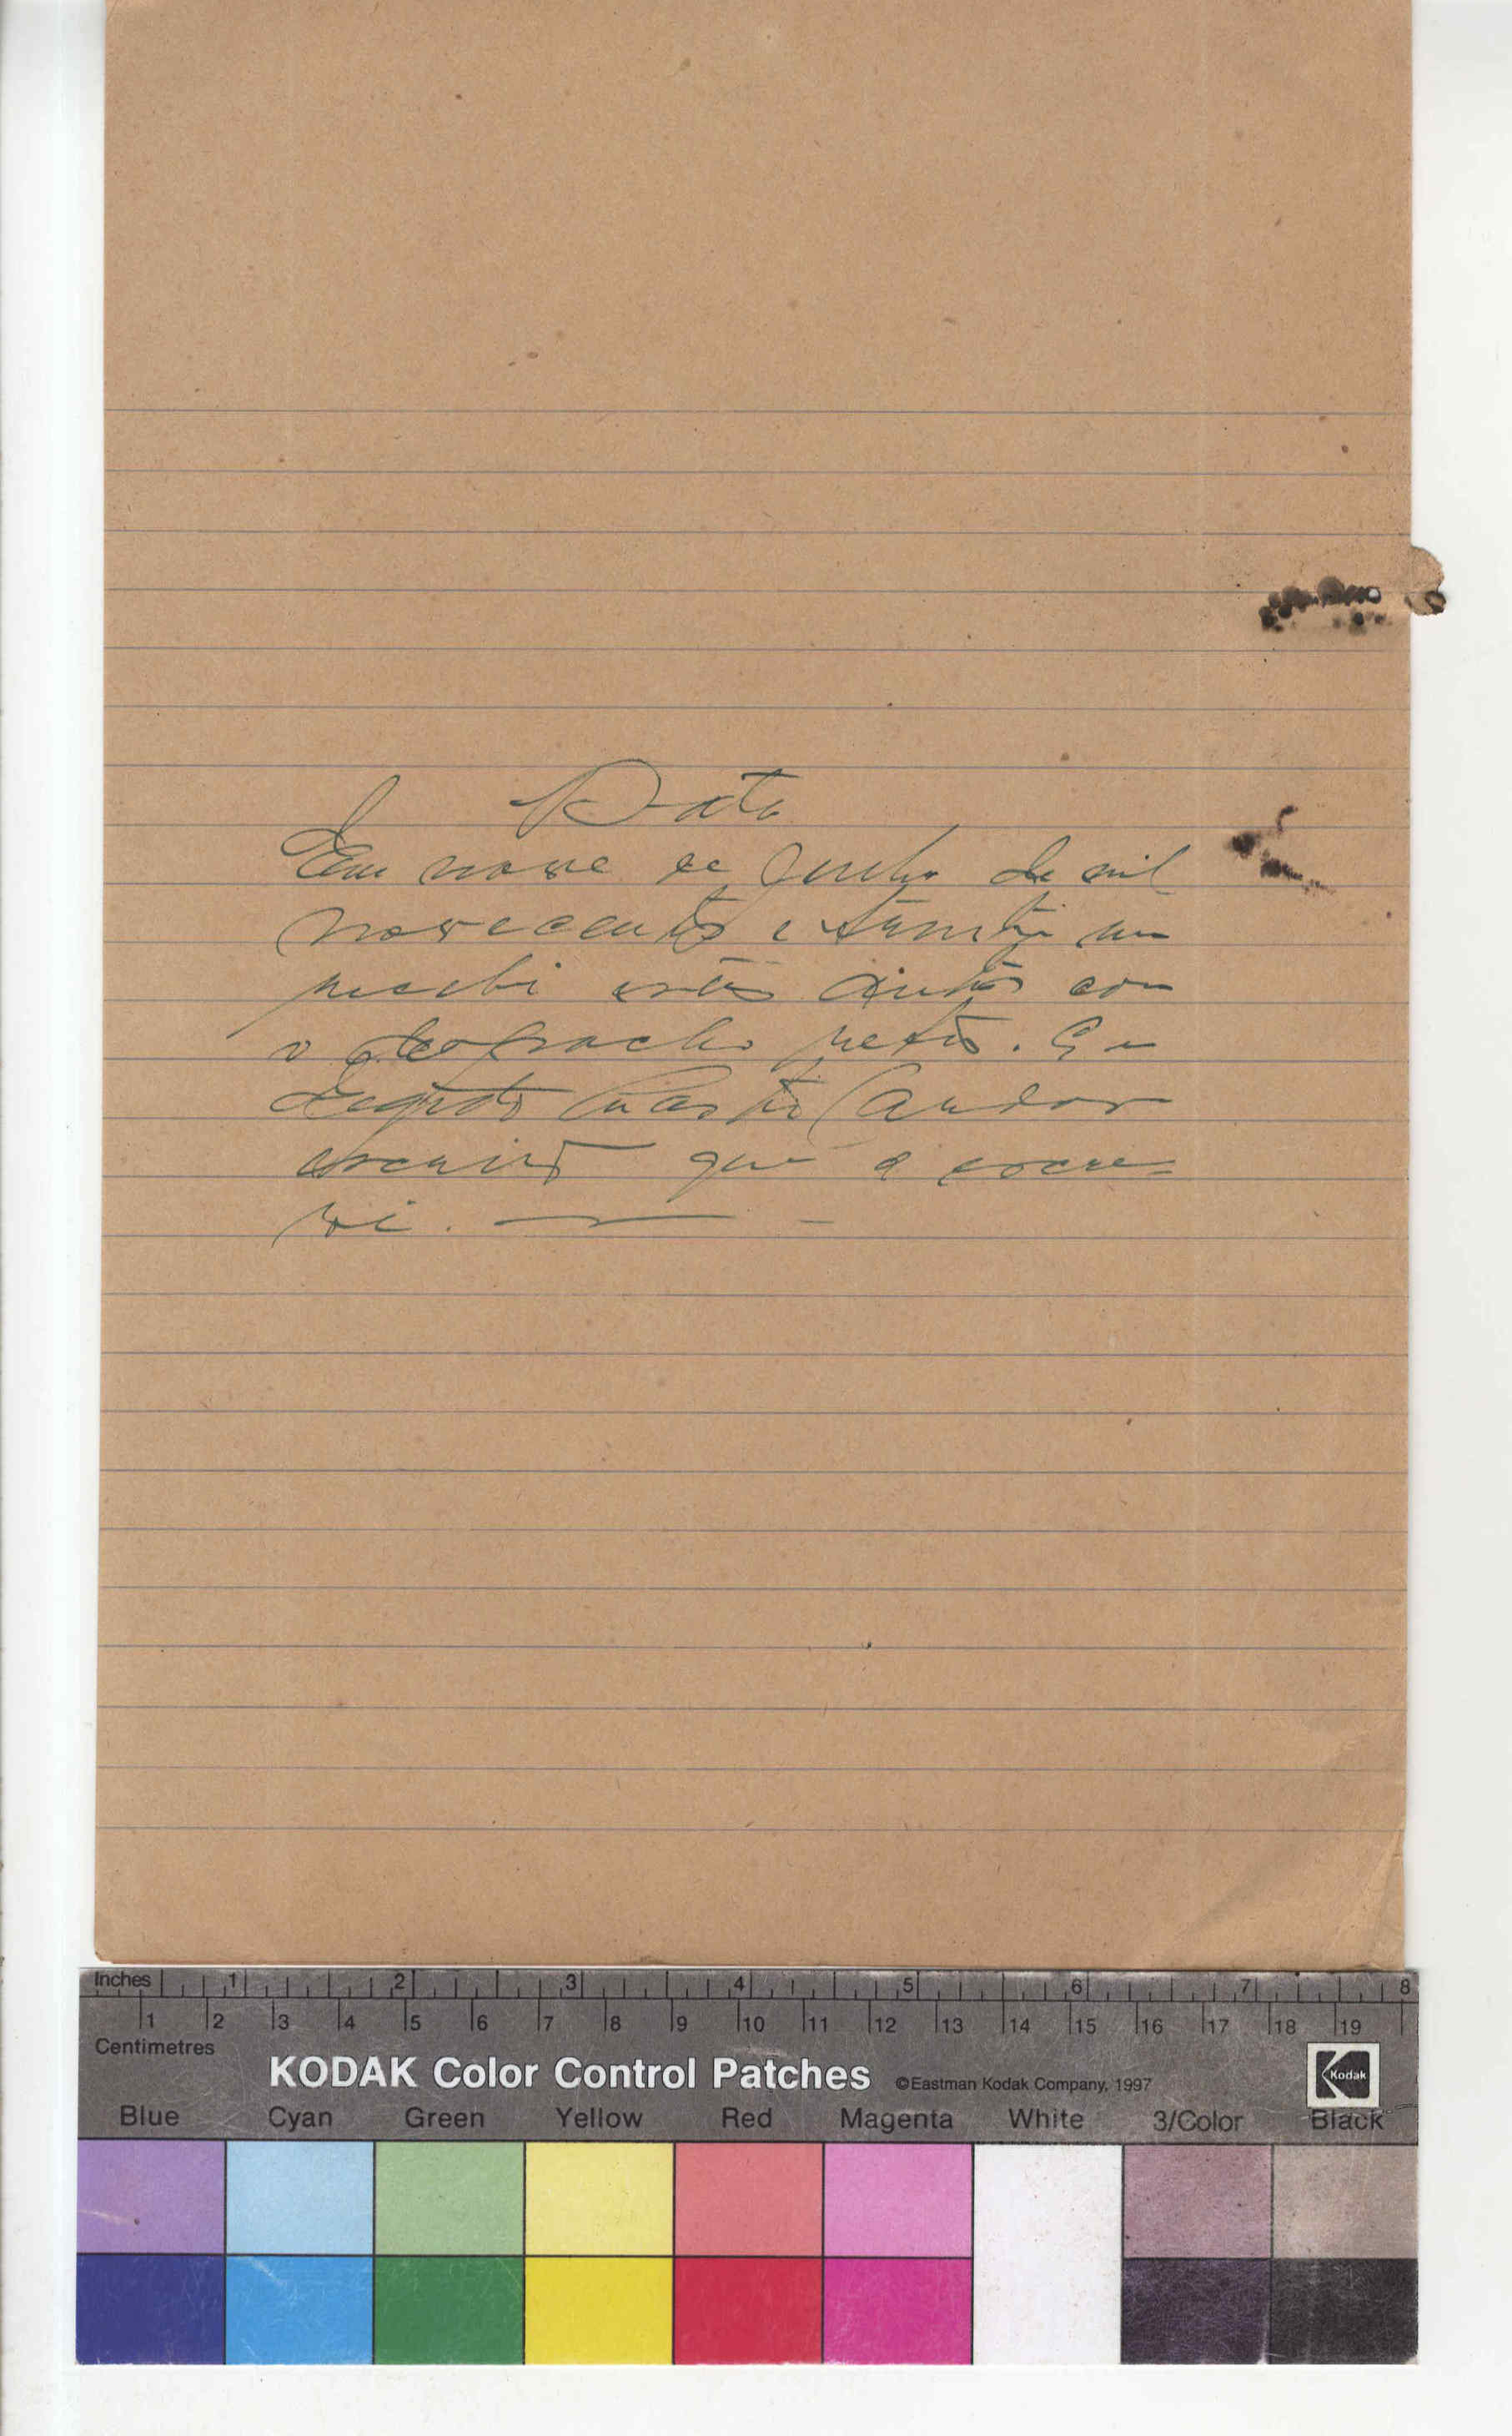 Data
Em nove de Junho de mil
novecentos e trinta um
recebi estes autos com
o despacho retro. Eu
escrivão que o escre=
vi.
Inches 1 2 3 4 5 6 7 8
1 2 3 4 5 6 7 8 9 10 11 12 13 14 15 16 17 18 19
Centimetres
KODAK Color Control Patches ©Eastman Kodak Company, 1997 Kodak
Blue Cyan Green Yellow Red Magenta White 3/Color Black